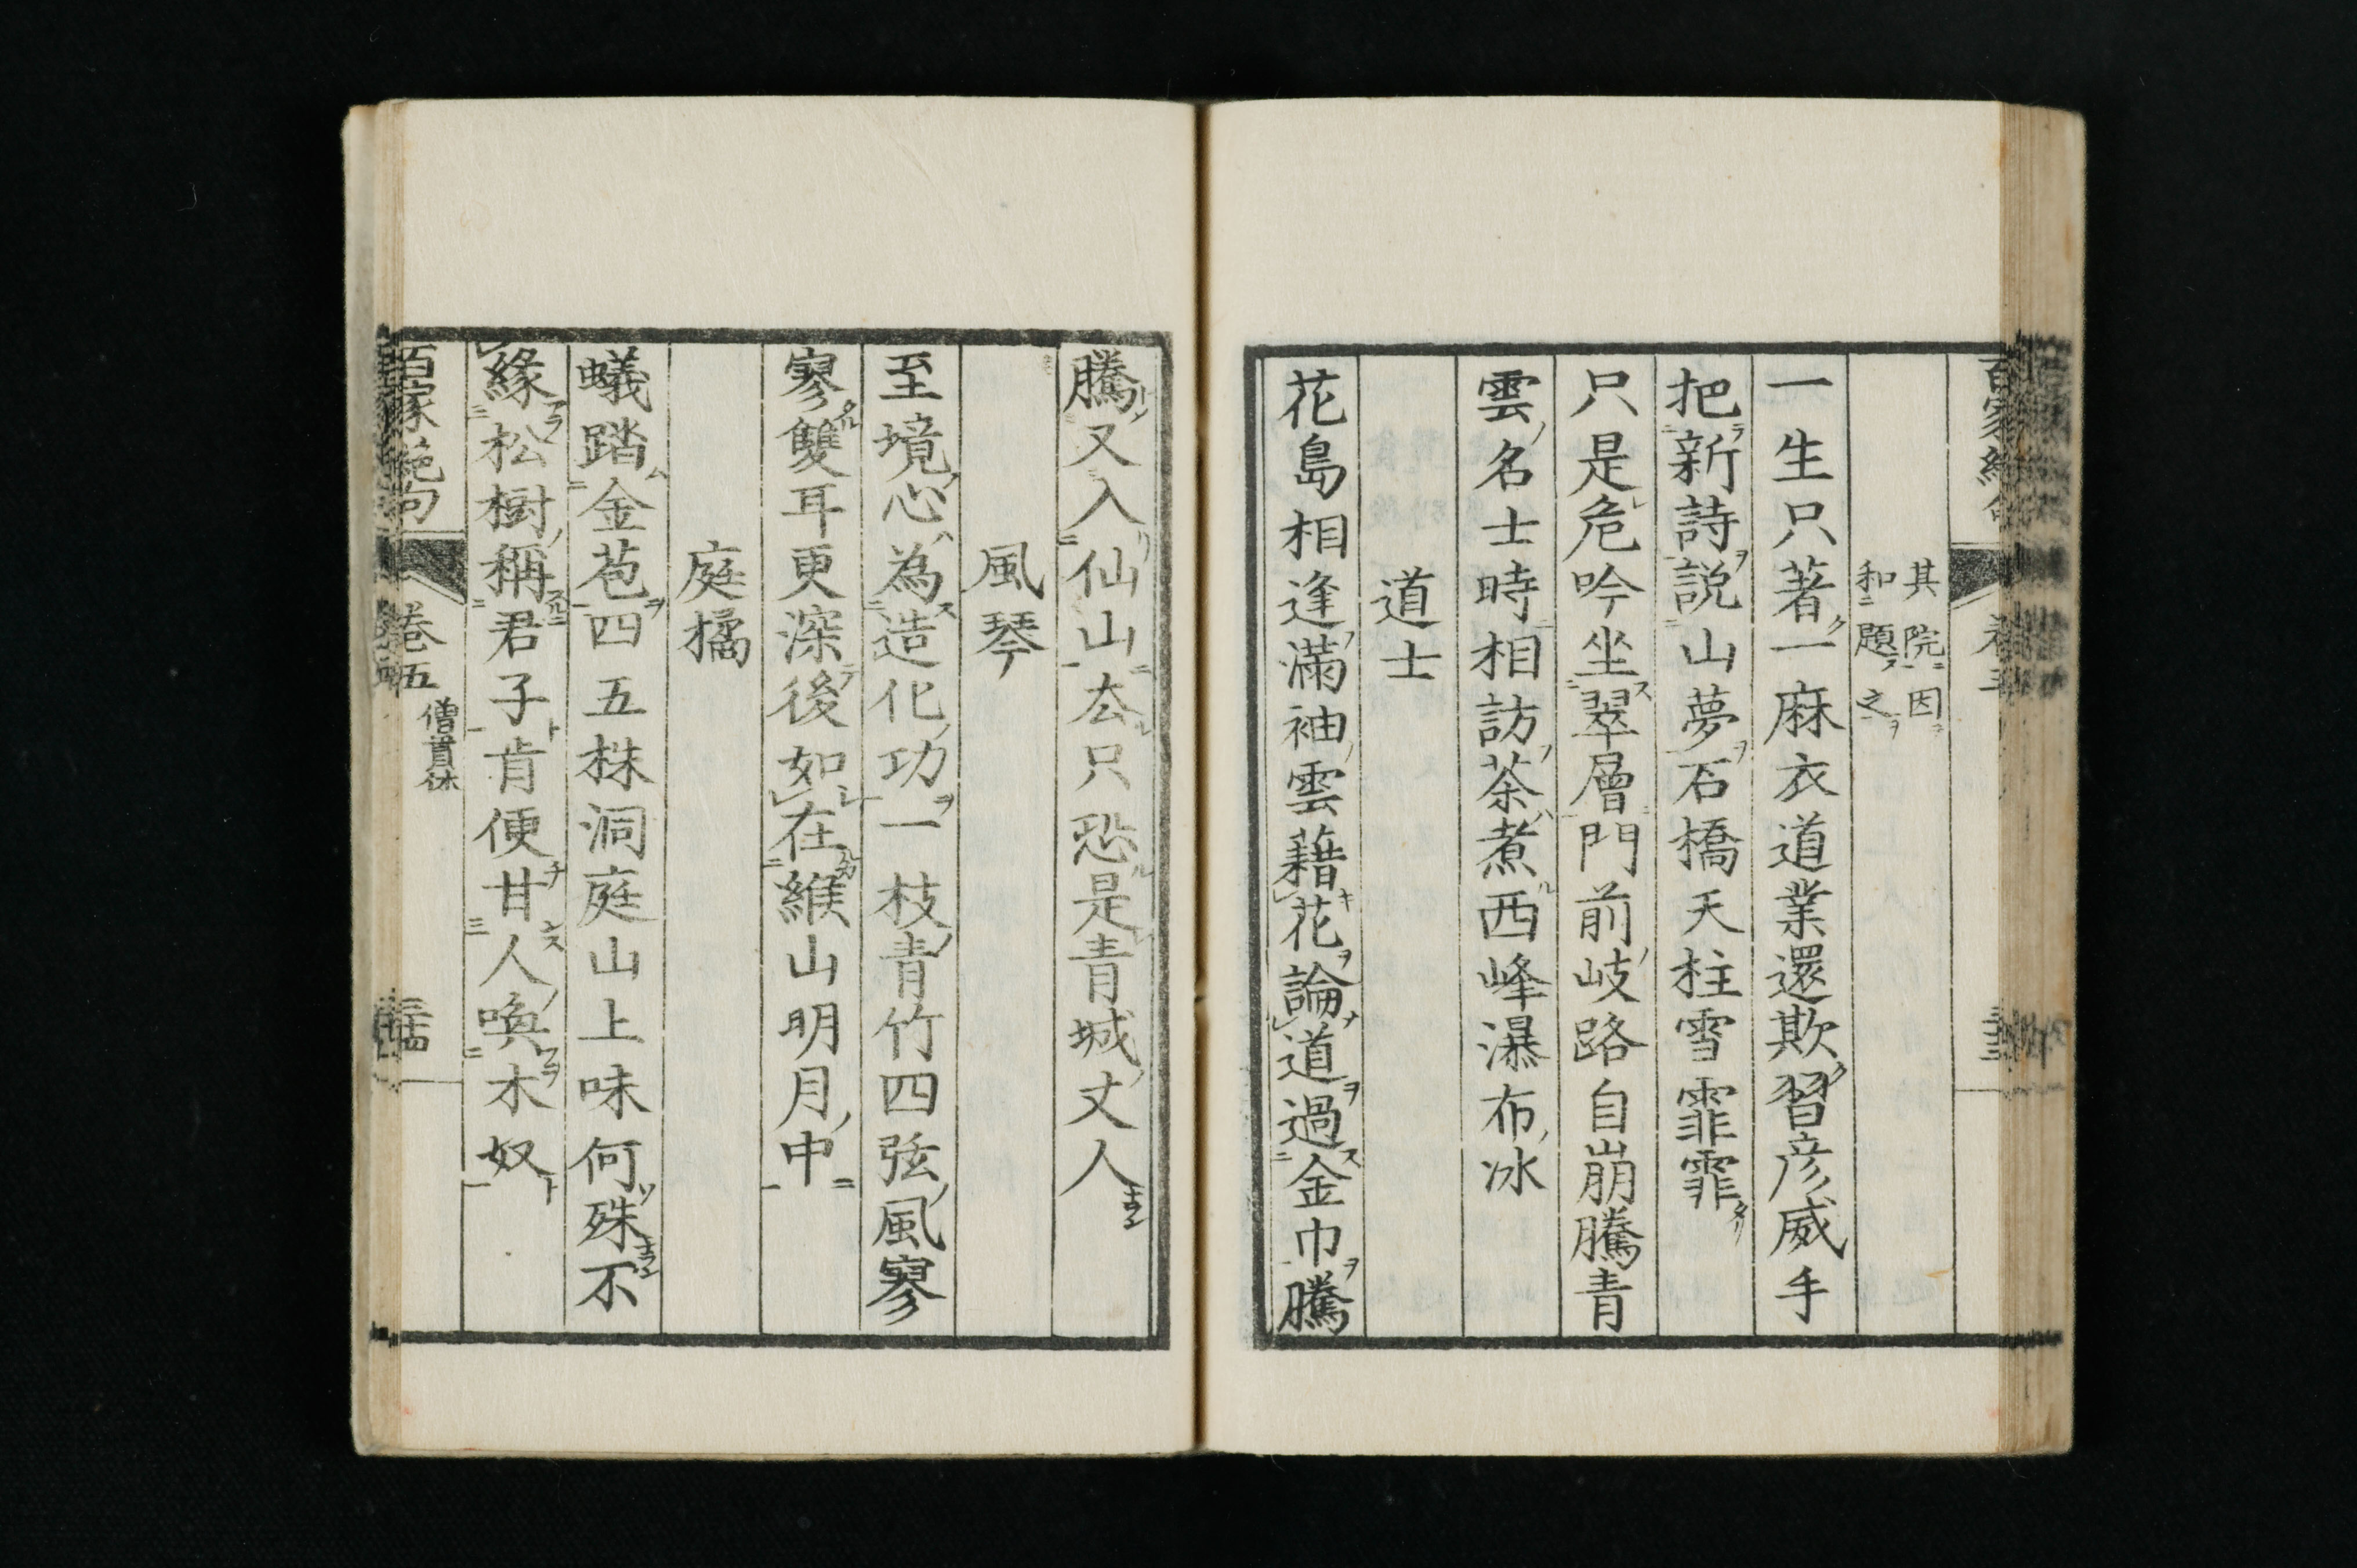 其院因
和題之
一生只著一麻衣道業還欺習彦威手
把新詩説山夢石橋天柱雪霏霏
只是危吟坐翠層門前岐路自崩騰青
雲名士時相訪茶煮西峰瀑布冰
道士
花島相逢滿袖雲藉花論道過金巾騰
騰又入仙山去只恐是青城丈人
風琴
至境心為造化功一枝青竹四弦風寥
寥雙耳更深後如在緱山明月中
庭橘
蟻踏金苞四五株洞庭山上味何殊不
緣松樹稱君子肯便甘人喚木奴
百家絶句
卷五
僧貫休